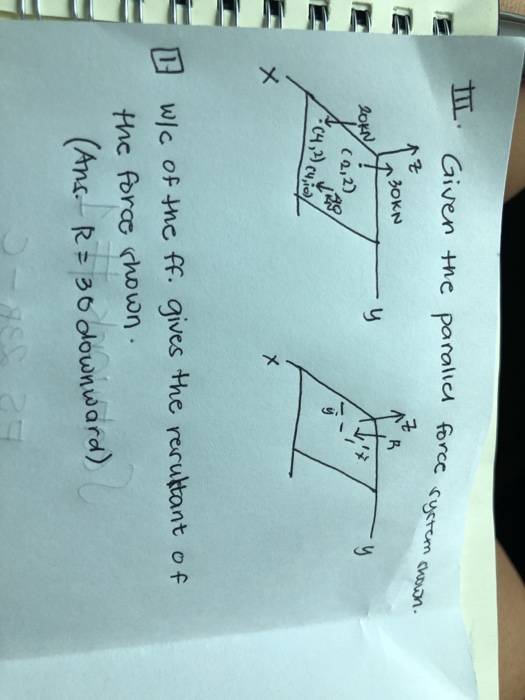 III. Given the parallel force system shown.
z
30KN
20KN
(2,2)
(4,2) (4,10)
x
y
z
R
x
y
x
y
1 w/c of the ff. gives the resultant of
the force shown.
(Ans. R = 30 downward)